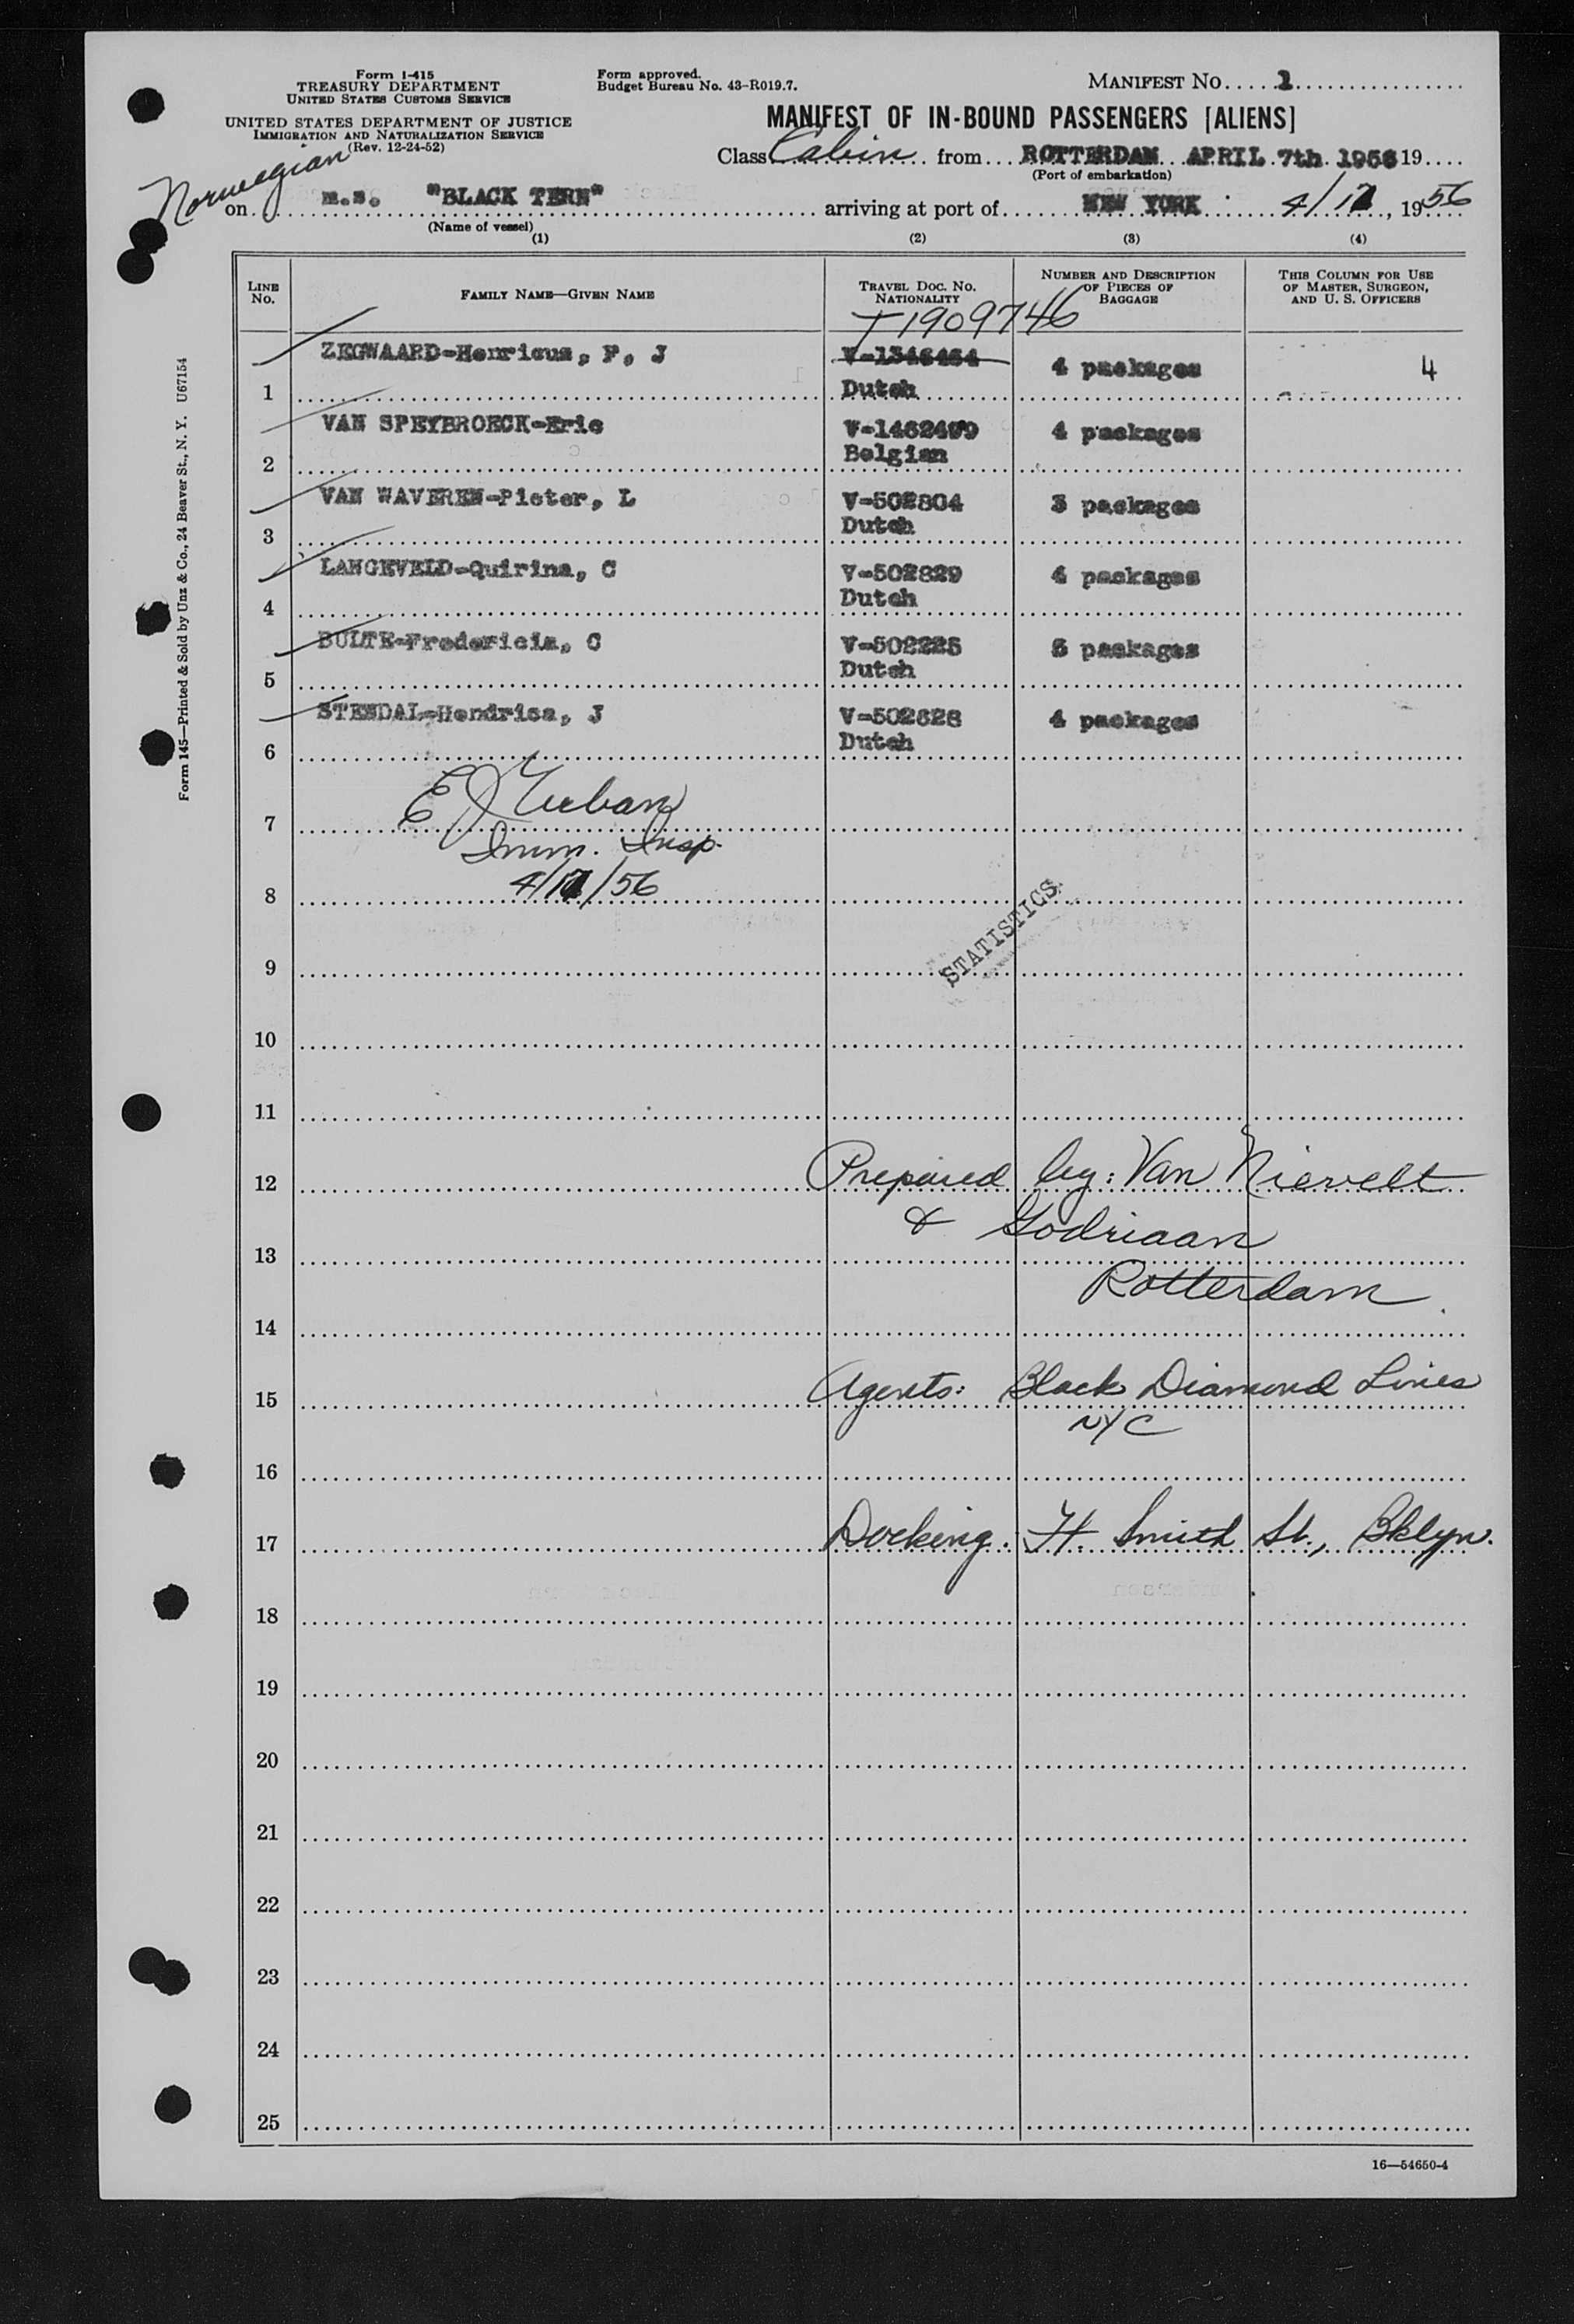 Form I-415
TREASURY DEPARTMENT
UNITED STATES CUSTOMS SERVICE
UNITED STATES DEPARTMENT OF JUSTICE
IMMIGRATION AND NATURALIZATION SERVICE
(Rev. 12-24-52)
Form approved.
Budget Bureau No. 43-R019.7.
MANIFEST NO. 1
MANIFEST OF IN-BOUND PASSENGERS [ALIENS]
Class Cabin from ROTTERDAM APRIL 7th 1956 19
(Port of embarkation)
Norwegian
on m.s. "BLACK TERN" arriving at port of NEW YORK 4/17, 1956
(Name of vessel)
(1) (2) (3) (4)
LINE NO. FAMILY NAME—GIVEN NAME TRAVEL DOC. NO. NATIONALITY NUMBER AND DESCRIPTION OF PIECES OF BAGGAGE THIS COLUMN FOR USE OF MASTER, SURGEON, AND U. S. OFFICERS
T1909746
1 ZEGWAARD-Henricus, P, J V-1346464 Dutch 4 packages 4
2 VAN SPEYBROECK-Eric V-1462499 Belgian 4 packages
3 VAN WAVEREN-Pieter, L V-502804 Dutch 3 packages
4 LANGEVELD-Quirina, C V-502829 Dutch 4 packages
5 BULTE-Fredericia, C V-502225 Dutch 5 packages
6 STENDAL-Hendrica, J V-502628 Dutch 4 packages
7 E J
Imm. Insp.
8 4/17/56
STATISTICS
9
10
11
12 Prepared by: Van Nievelt
& Godriaan
13
Rotterdam
14
15 Agents: Black Diamond Lines
NYC
16
17 Docking: Ft. Smith St., Bklyn.
18
19
20
21
22
23
24
25
16—54650-4
Form 145—Printed & Sold by Unz & Co., 24 Beaver St., N. Y. U67154